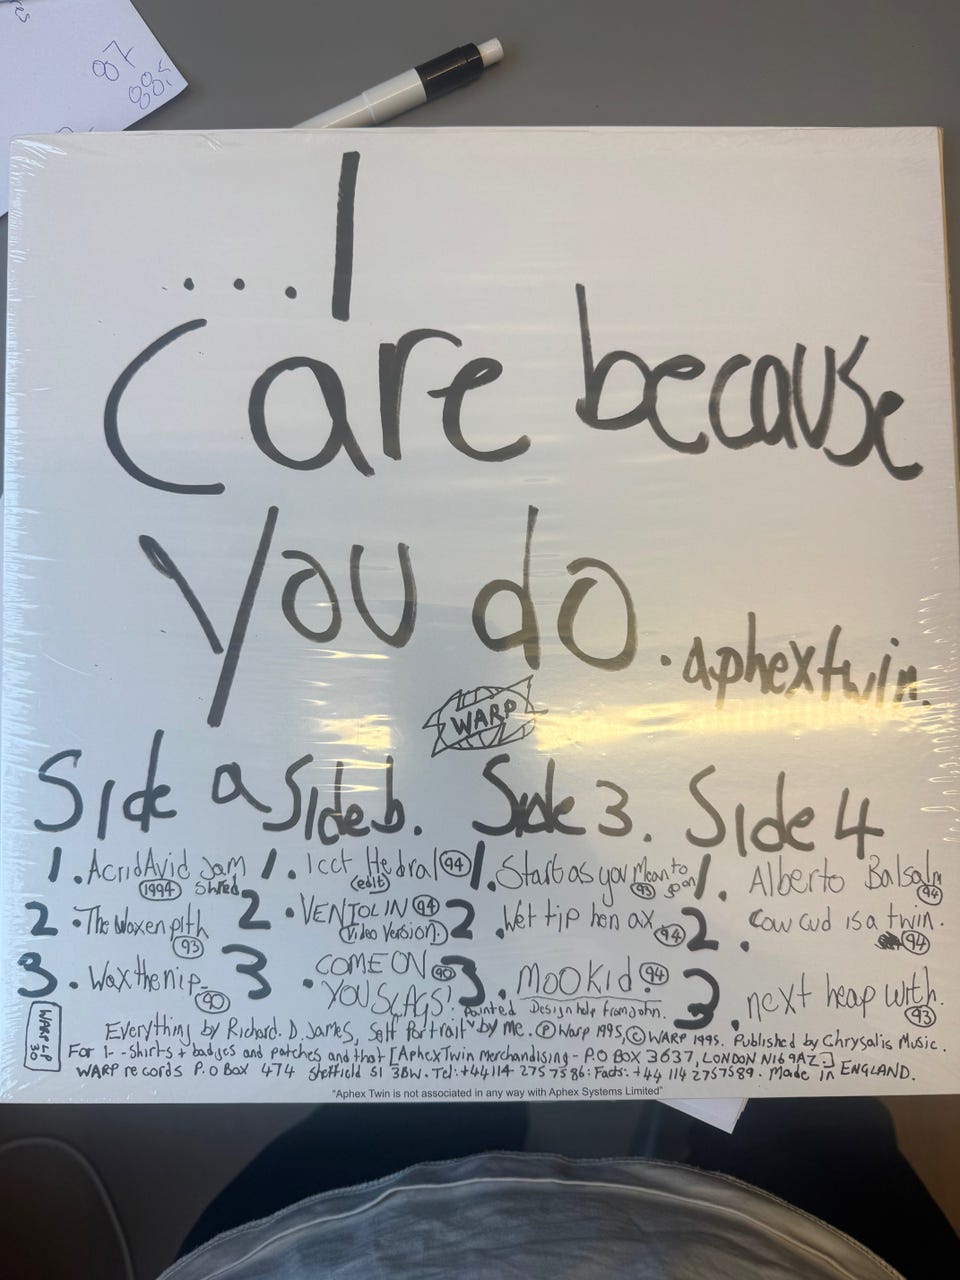 ...I
Care because
you do
. aphextwin.
WARP
Side a
1. Acrid Avid Jam Shred (1994)
2. The Waxen pith (93)
3. Wax the nip (90)
Side b.
1. Icct Hedral (94) (edit)
2. VENTOLIN (94) (Video Version.)
3. COME ON YOU SLAGS! (90)
Side 3.
1. Start as you Mean to go on (93)
2. Wet tip hen ax. (94)
3. MOOKid. (94)
Side 4
1. Alberto Balsalm (94)
2. Cow cud is a twin. (94)
3. next heap with. (93)
WARP LP 30
Everything by Richard. D. James, Self Portrait painted by me. Design help from John. Ⓟ Warp 1995, © WARP 1995. Published by Chrysalis Music.
For T-Shirts + badges and patches and that [AphexTwin Merchandising - P.O BOX 3637, LONDON N16 9AZ.]
WARP records P.O Box 474 Sheffield S1 3BW. Tel: +44114 275 7586: Facts: +44 114 2757589. Made in ENGLAND.
"Aphex Twin is not associated in any way with Aphex Systems Limited"